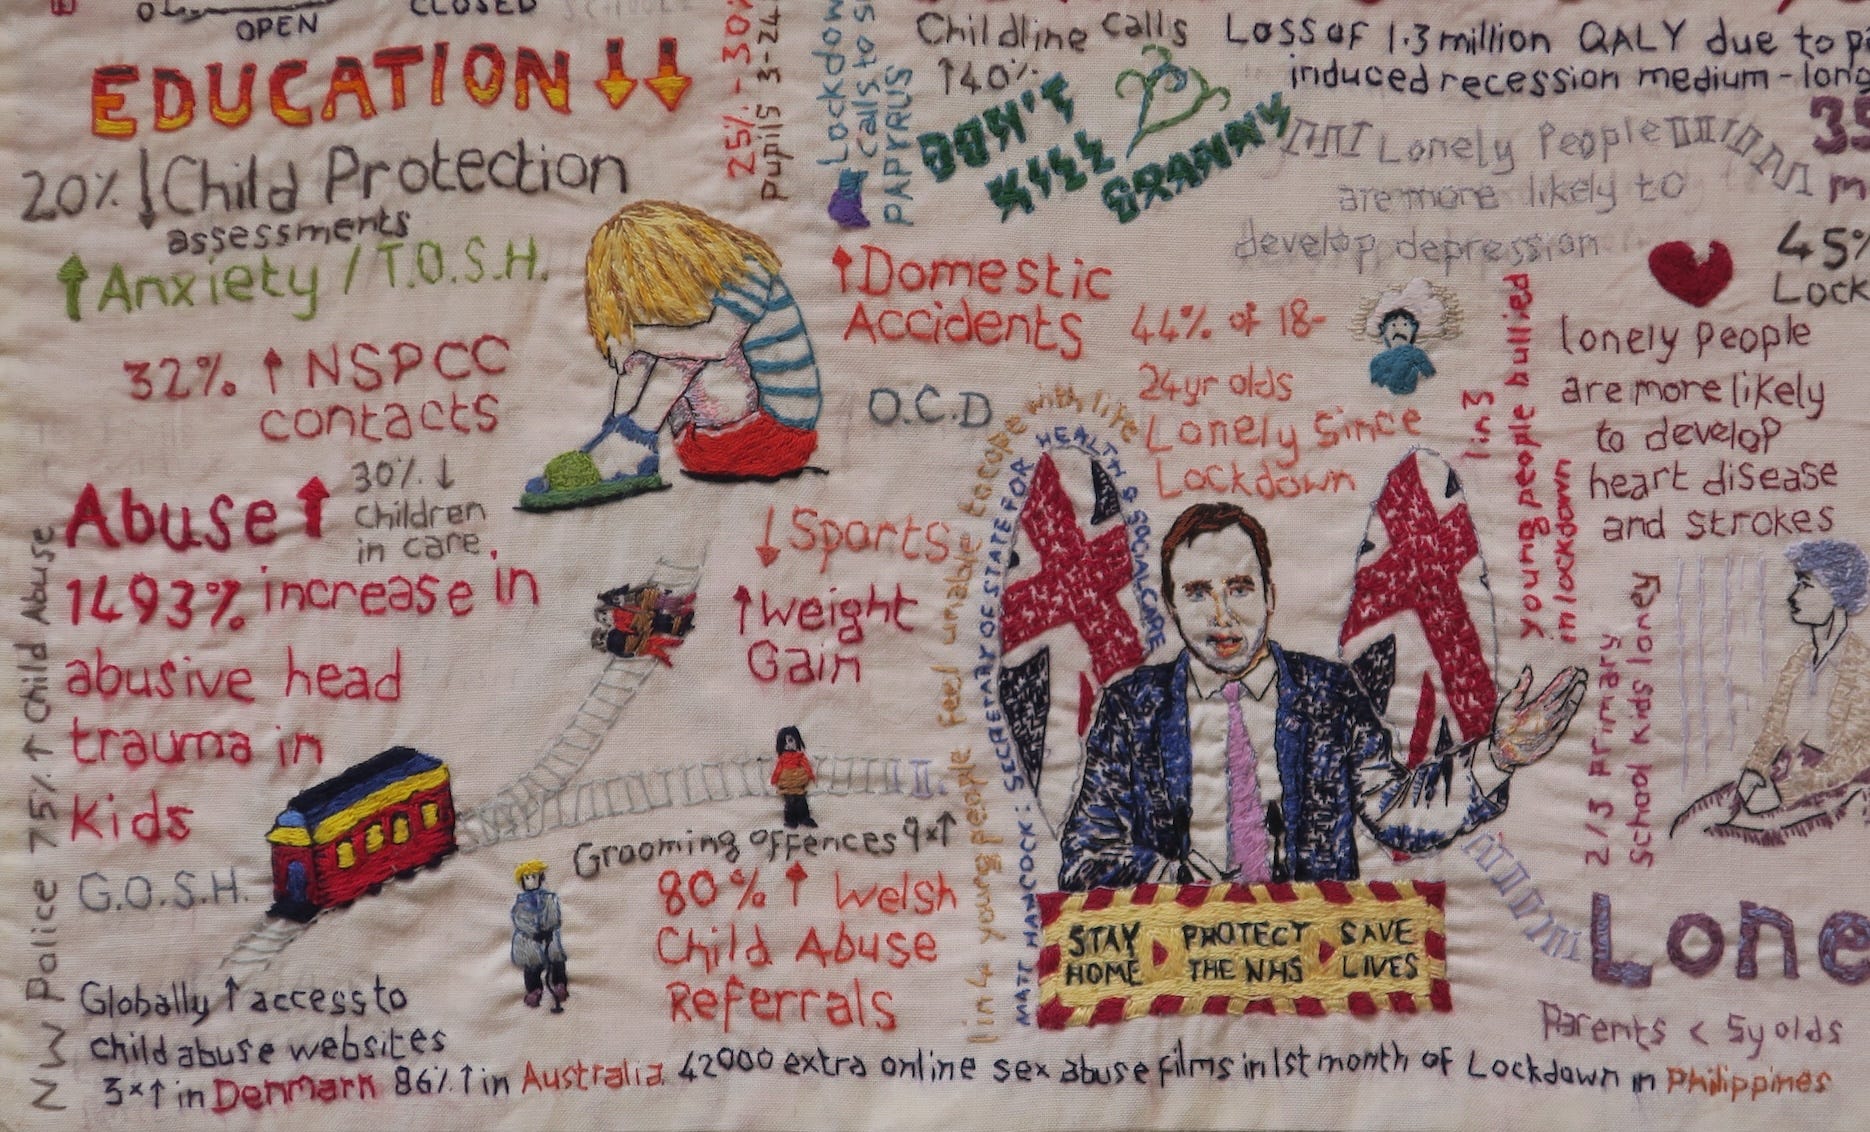 OPEN
CLOSED
EDUCATION ↓↓
20% ↓ Child Protection
assessments
↑ Anxiety / T.O.S.H.
32% ↑ NSPCC
contacts
Abuse ↑
30% ↓
children
in care.
1493% increase in
abusive head
trauma in
Kids
G.O.S.H.
NW Police 75% ↑ Child Abuse
Globally ↑ access to
child abuse websites
3x↑ in Denmark 86% ↑ in Australia. 42000 extra online sex abuse films in 1st month of Lockdown in Philippines
25% - 30%
Pupils 3-24
Lockdown
calls to
PAPYRUS
Childline calls
↑ 40%
DON'T
KILL
GRANNY
Loss of 1.3 million QALY due to
induced recession medium-long
Lonely People
are more likely to
develop depression
↑ Domestic
Accidents
O.C.D
44% of 18-
24yr olds
Lonely since
Lockdown
↓ Sports
↑ Weight
Gain
Grooming offences 9x↑
80% ↑ Welsh
Child Abuse
Referrals
1 in 4 young people feel unable to cope with life
MATT HANCOCK: SECRETARY OF STATE FOR HEALTH & SOCIAL CARE
STAY
HOME
PROTECT
THE NHS
SAVE
LIVES
1 in 3
young people bullied
in lockdown
45%
Lock
lonely people
are more likely
to develop
heart disease
and strokes
2/3 Primary
School kids loney
Lone
Parents < 5y olds